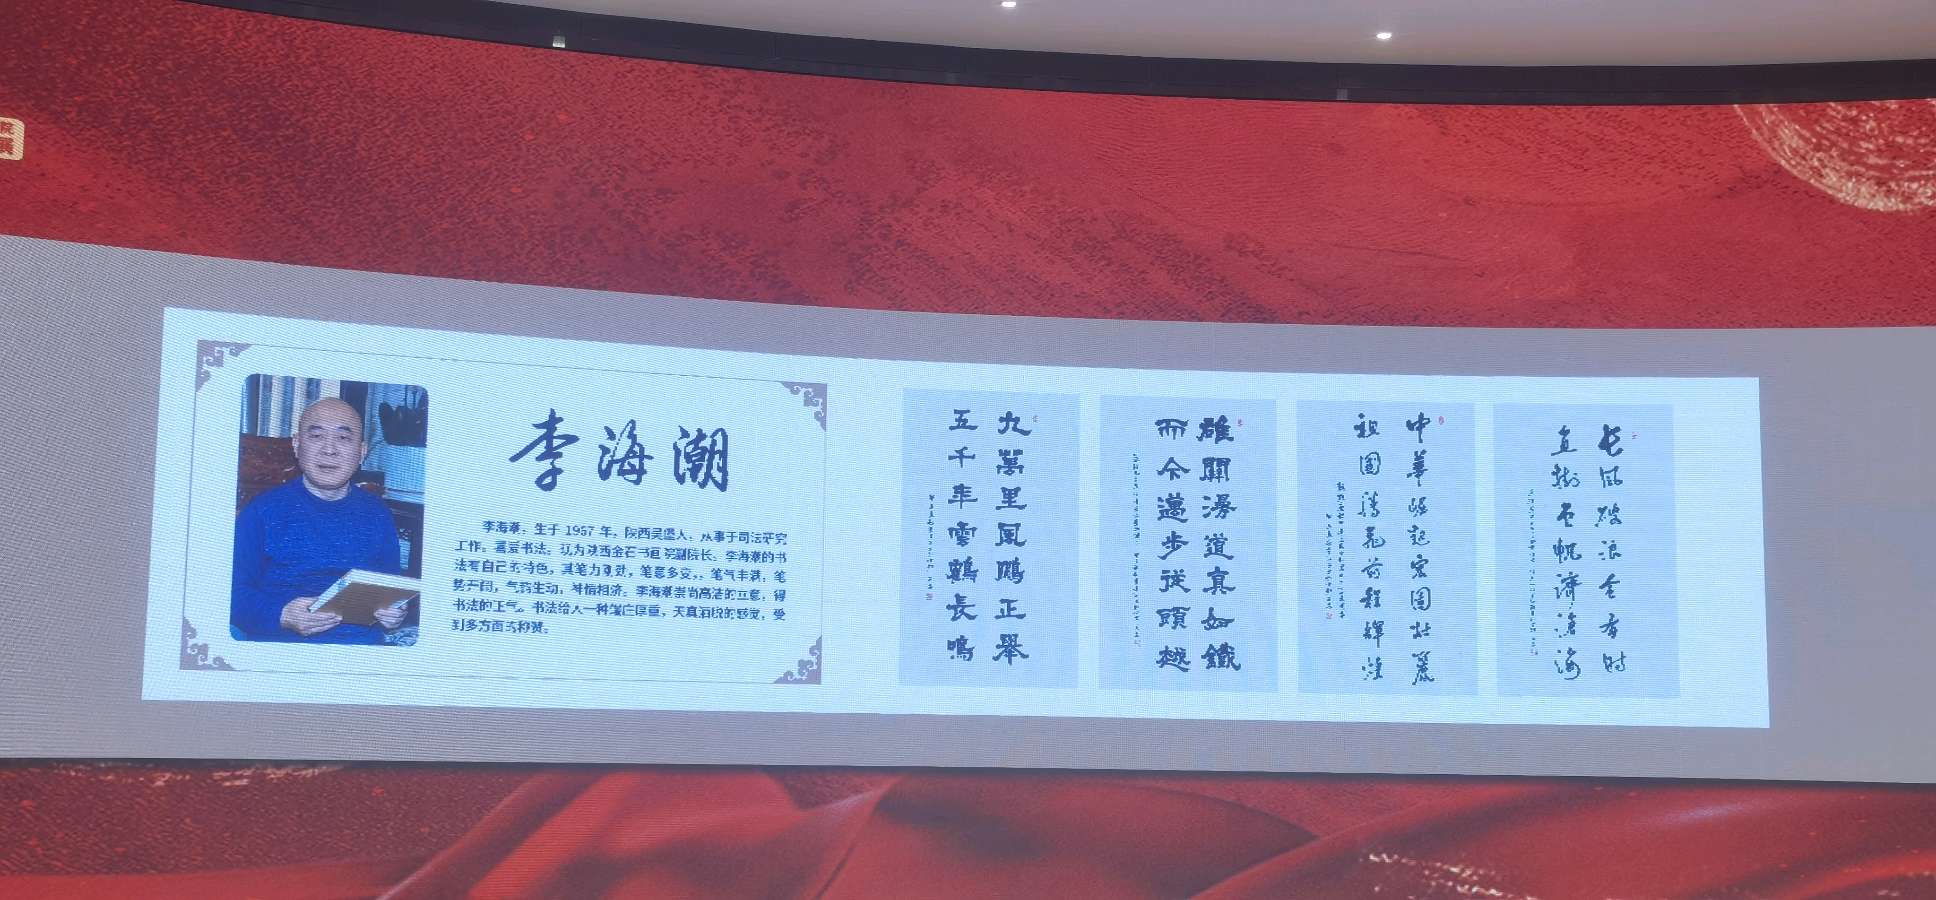 院
李海潮
李海潮，生于 1957 年，陕西吴堡人，从事于司法研究
工作。喜爱书法。现为陕西金石书画院副院长。李海潮的书
法有自己的特色，其笔力遒劲，笔意多变，笔气丰满，笔
势开阔，气韵生动，神情相济。李海潮崇尚高洁的立意，得
书法的正气。书法给人一种端庄厚重，天真洒脱的感觉，受
到多方面的称赞。
九萬里風鵬正舉
五千年雲鶴長鳴
雄關漫道真如鐵
而今邁步從頭越
中華崛起宏圖壯麗
祖國騰飛前程輝煌
長風破浪會有時
直掛雲帆濟滄海